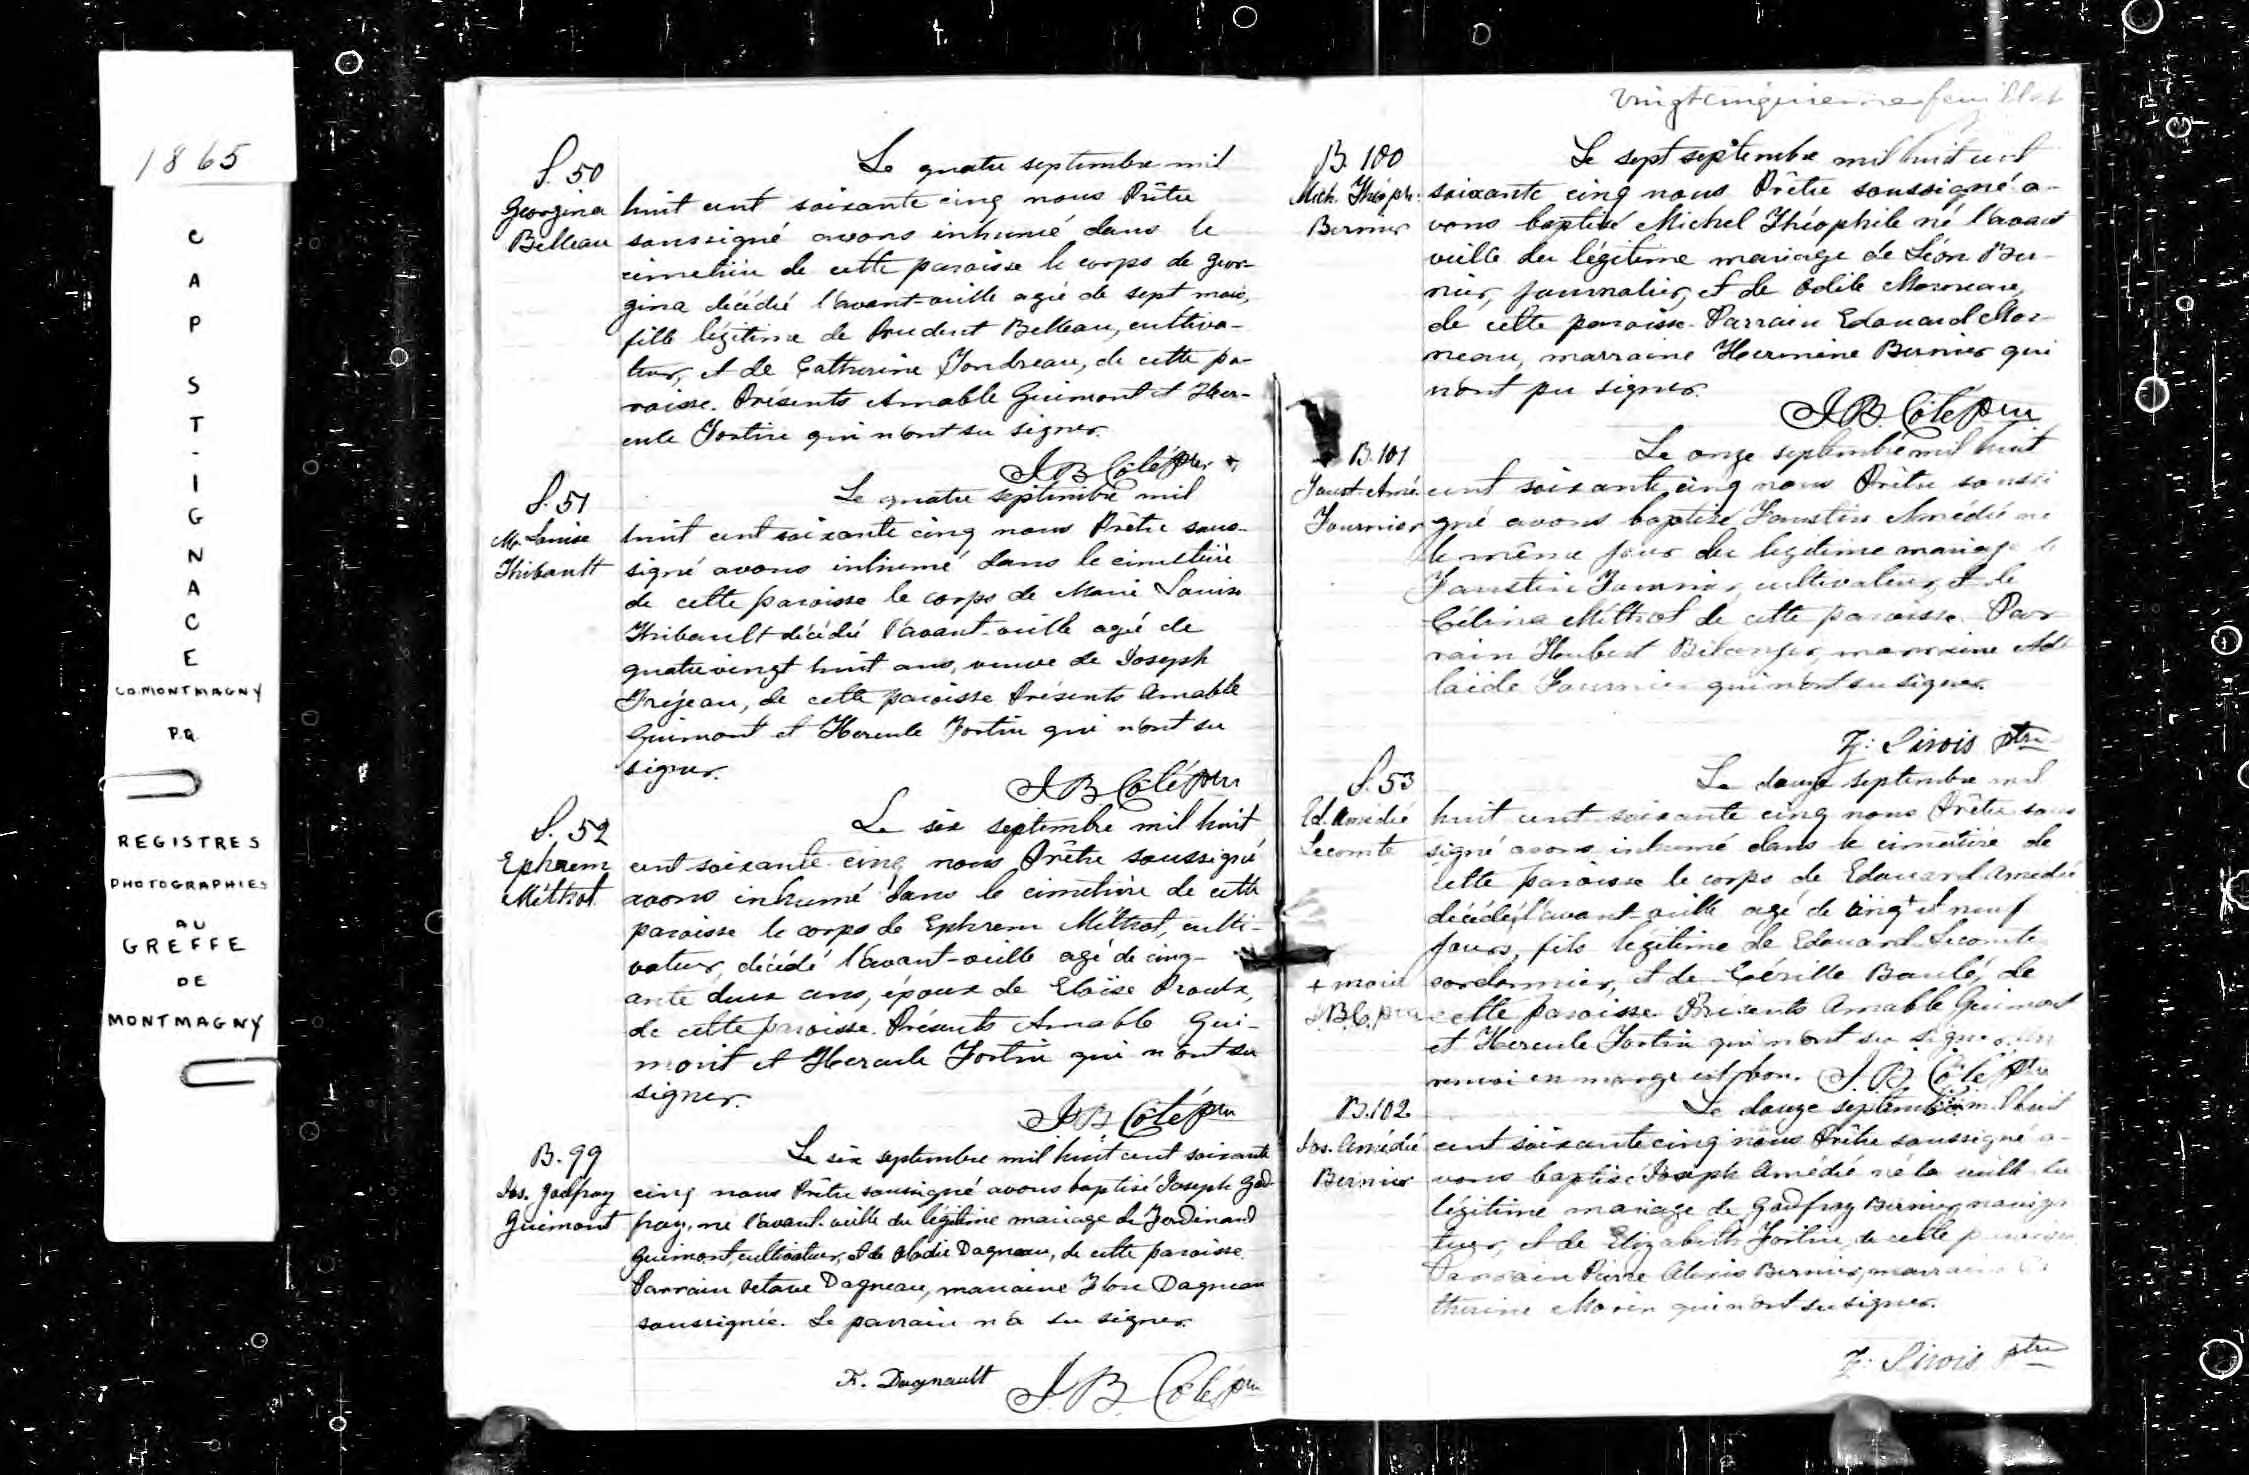 1865
CAP ST-IGNACE
CO. MONTMAGNY
P.Q.
REGISTRES
PHOTOGRAPHIES
AU
GREFFE
DE
MONTMAGNY
S. 50
Georgina
Belleau
Le quatre septembre mil
huit cent soixante cinq nous Prêtre
soussigné avons inhumé dans le
cimetière de cette paroisse le corps de Geor-
gina décédé l'avant-veille agée de sept mois,
fille légitime de Prudent Belleau, cultiva-
teur, et de Catherine Jondreau, de cette pa-
roisse. Présents Amable Guimont et Her-
cule Fortin qui n'ont su signer.
J B Côté ptre
S. 51
M. Louise
Thibault
Le quatre septembre mil
huit cent soixante cinq nous Prêtre sous-
signé avons inhumé dans le cimetière
de cette paroisse le corps de Marie Louise
Thibault décédé l'avant-veille agée de
quatre vingt huit ans, veuve de Joseph
Fréjeau, de cette paroisse Présents Amable
Guimont et Hercule Fortin qui n'ont su
signer.
J B Côté ptre
S. 52
Ephrem
Méthot
Le six septembre mil huit
cent soixante cinq nous Prêtre soussigné
avons inhumé dans le cimetière de cette
paroisse le corps de Ephrem Méthot, culti-
vateur, décédé l'avant-veille agé de cinq-
ante deux ans, époux de Eloïse Proulx,
de cette paroisse. Présents Amable Gui-
mont et Hercule Fortin qui n'ont su
signer.
J B Côté ptre
B. 99
Jos. Godfroy
Guimont
Le six septembre mil huit cent soixante
cinq nous Prêtre soussigné avons baptisé Joseph God-
froy, né l'avant-veille du légitime mariage de Ferdinand
Guimont, cultivateur, et de Elodie Dagneau, de cette paroisse.
Parrain Octave Dagneau, marraine Flore Dagneau
soussignée. Le parrain n'a su signer.
F. Dagnault
J. B. Côté ptre
vingt cinquieme feuillet
B. 100
Mich. Théoph.
Bernier
Le sept septembre mil huit cent
soixante cinq nous Prêtre soussigné a-
vons baptisé Michel Théophile né l'avant
veille du légitime mariage de Léon Ber-
nier, journalier, et de Odile Morneau,
de cette paroisse. Parrain Edouard Mor-
neau, marraine Hermine Bernier qui
n'ont pu signer.
J B. Côté ptre
B. 101
Faust. Amé.
Fournier
Le onze septembre mil huit
cent soixante cinq nous Prêtre soussi
gné avons baptisé Faustin Amédé né
le même jour du légitime mariage de
Faustin Fournier, cultivateur, et de
Célina Méthot de cette paroisse. Par
rain Hubert Bélanger, marraine Adé
laide Fournier qui n'ont su signer.
Z: Sirois ptre
S. 53
Ed. Amédé
Lecomte
Le douze septembre mil
huit cent soixante cinq nous Prêtre sous
signé avons inhumé dans le cimetière de
cette paroisse le corps de Edouard Amédé
décédé l'avant-veille agé de cinq + et neuf
jours, fils légitime de Edouard Lecomte
cordonnier, et de Boulé, de
cette paroisse Présents Amable Guimont
et Hercule Fortin qui n'ont su signer. Un
renvoi en marge est bon. J. B. Côté ptre
+ mois
J.B.C. ptre
B. 102
Jos. Amédé
Bernier
Le douze septembre mil huit
cent soixante cinq nous Prêtre soussigné a-
vons baptisé Joseph Amédé né la veille du
légitime mariage de Godfroy Bernier, naviga
teur, et de Elizabeth Fortin, de cette paroisse
Parrain Pierre Alexis Bernier, marraine Ca
therine Morin qui n'ont su signer.
Z: Sirois ptre